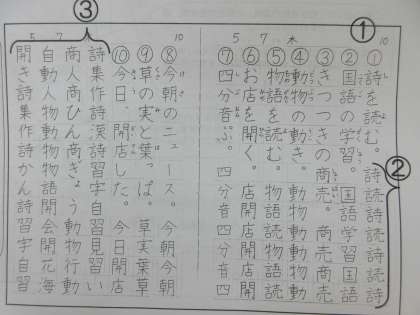 ①
10 木 7 5
①詩を読む。 詩読詩読詩読詩
②国語の学習。 国語学習国語
③きつつきの商売。 商売商売
④動物の動き。 動物動物動
⑤物語を読む。 物語読物語読
⑥お店を開く。 店開店開店開
⑦四分音ぷ。 四分音四分音四
②
③
10 7 5
⑧今朝のニュース。 今朝今朝
⑨草の実と葉っぱ。 草実葉草
⑩今日、開店した。 今日開店
詩集作詩漢詩習字自習見習い
商人商ひん商ぎょう動物行動
自動人物物語開会開花海
開き詩集作詩かん詩習字自習